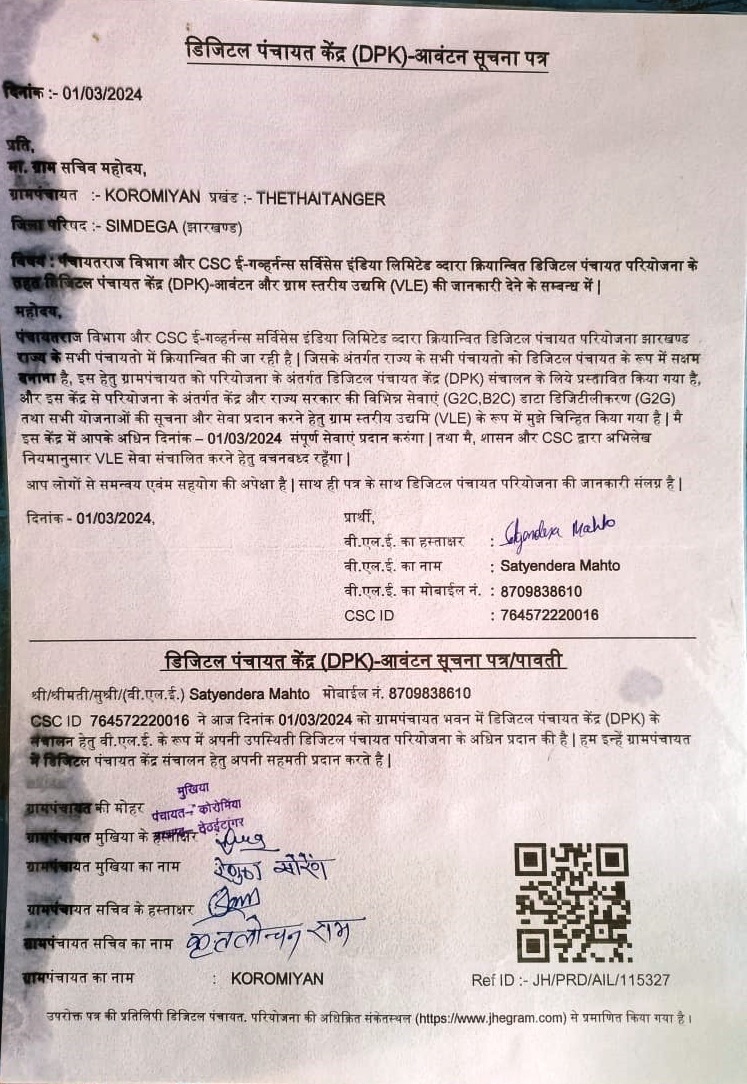 डिजिटल पंचायत केंद्र (DPK)-आवंटन सूचना पत्र
दिनांक :- 01/03/2024
प्रति,
मा. ग्राम सचिव महोदय,
ग्रामपंचायत :- KOROMIYAN प्रखंड :- THETHAITANGER
जिला परिषद :- SIMDEGA (झारखण्ड)
विषय : पंचायतराज विभाग और CSC ई-गव्हर्नन्स सर्विसेस इंडिया लिमिटेड व्दारा क्रियान्वित डिजिटल पंचायत परियोजना के
तहत डिजिटल पंचायत केंद्र (DPK)-आवंटन और ग्राम स्तरीय उद्यमि (VLE) की जानकारी देने के सम्बन्ध में |
महोदय,
पंचायतराज विभाग और CSC ई-गव्हर्नन्स सर्विसेस इंडिया लिमिटेड व्दारा क्रियान्वित डिजिटल पंचायत परियोजना झारखण्ड
राज्य के सभी पंचायतो में क्रियान्वित की जा रही है | जिसके अंतर्गत राज्य के सभी पंचायतो को डिजिटल पंचायत के रूप में सक्षम
बनाना है, इस हेतु ग्रामपंचायत को परियोजना के अंतर्गत डिजिटल पंचायत केंद्र (DPK) संचालन के लिये प्रस्तावित किया गया है,
और इस केंद्र से परियोजना के अंतर्गत केंद्र और राज्य सरकार की विभिन्न सेवाएं (G2C,B2C) डाटा डिजिटीलीकरण (G2G)
तथा सभी योजनाओं की सूचना और सेवा प्रदान करने हेतु ग्राम स्तरीय उद्यमि (VLE) के रूप में मुझे चिन्हित किया गया है | मै
इस केंद्र में आपके अधिन दिनांक – 01/03/2024 संपूर्ण सेवाएं प्रदान करुंगा | तथा मै, शासन और CSC द्वारा अभिलेख
नियमानुसार VLE सेवा संचालित करने हेतु वचनबध्द रहूँगा |
आप लोगों से समन्वय एवंम सहयोग की अपेक्षा है | साथ ही पत्र के साथ डिजिटल पंचायत परियोजना की जानकारी संलग्न है |
दिनांक - 01/03/2024,
प्रार्थी,
वी.एल.ई. का हस्ताक्षर : Satyendera Mahto
वी.एल.ई. का नाम : Satyendera Mahto
वी.एल.ई. का मोबाईल नं. : 8709838610
CSC ID : 764572220016
डिजिटल पंचायत केंद्र (DPK)-आवंटन सूचना पत्र/पावती
श्री/श्रीमती/सुश्री/(वी.एल.ई.) Satyendera Mahto मोबाईल नं. 8709838610
CSC ID 764572220016 ने आज दिनांक 01/03/2024 को ग्रामपंचायत भवन में डिजिटल पंचायत केंद्र (DPK) के
संचालन हेतु वी.एल.ई. के रूप में अपनी उपस्थिती डिजिटल पंचायत परियोजना के अधिन प्रदान की है | हम इन्हें ग्रामपंचायत
में डिजिटल पंचायत केंद्र संचालन हेतु अपनी सहमती प्रदान करते है |
मुखिया
ग्रामपंचायत की मोहर पंचायत-कोरोमिंया
ग्रामपंचायत मुखिया के हस्ताक्षर
ग्रामपंचायत मुखिया का नाम रेणुका सोरेंग
ग्रामपंचायत सचिव के हस्ताक्षर
ग्रामपंचायत सचिव का नाम राम
ग्रामपंचायत का नाम : KOROMIYAN
Ref ID :- JH/PRD/AIL/115327
उपरोक्त पत्र की प्रतिलिपी डिजिटल पंचायत. परियोजना की अधिक्रित संकेतस्थल (https://www.jhegram.com) से प्रमाणित किया गया है |